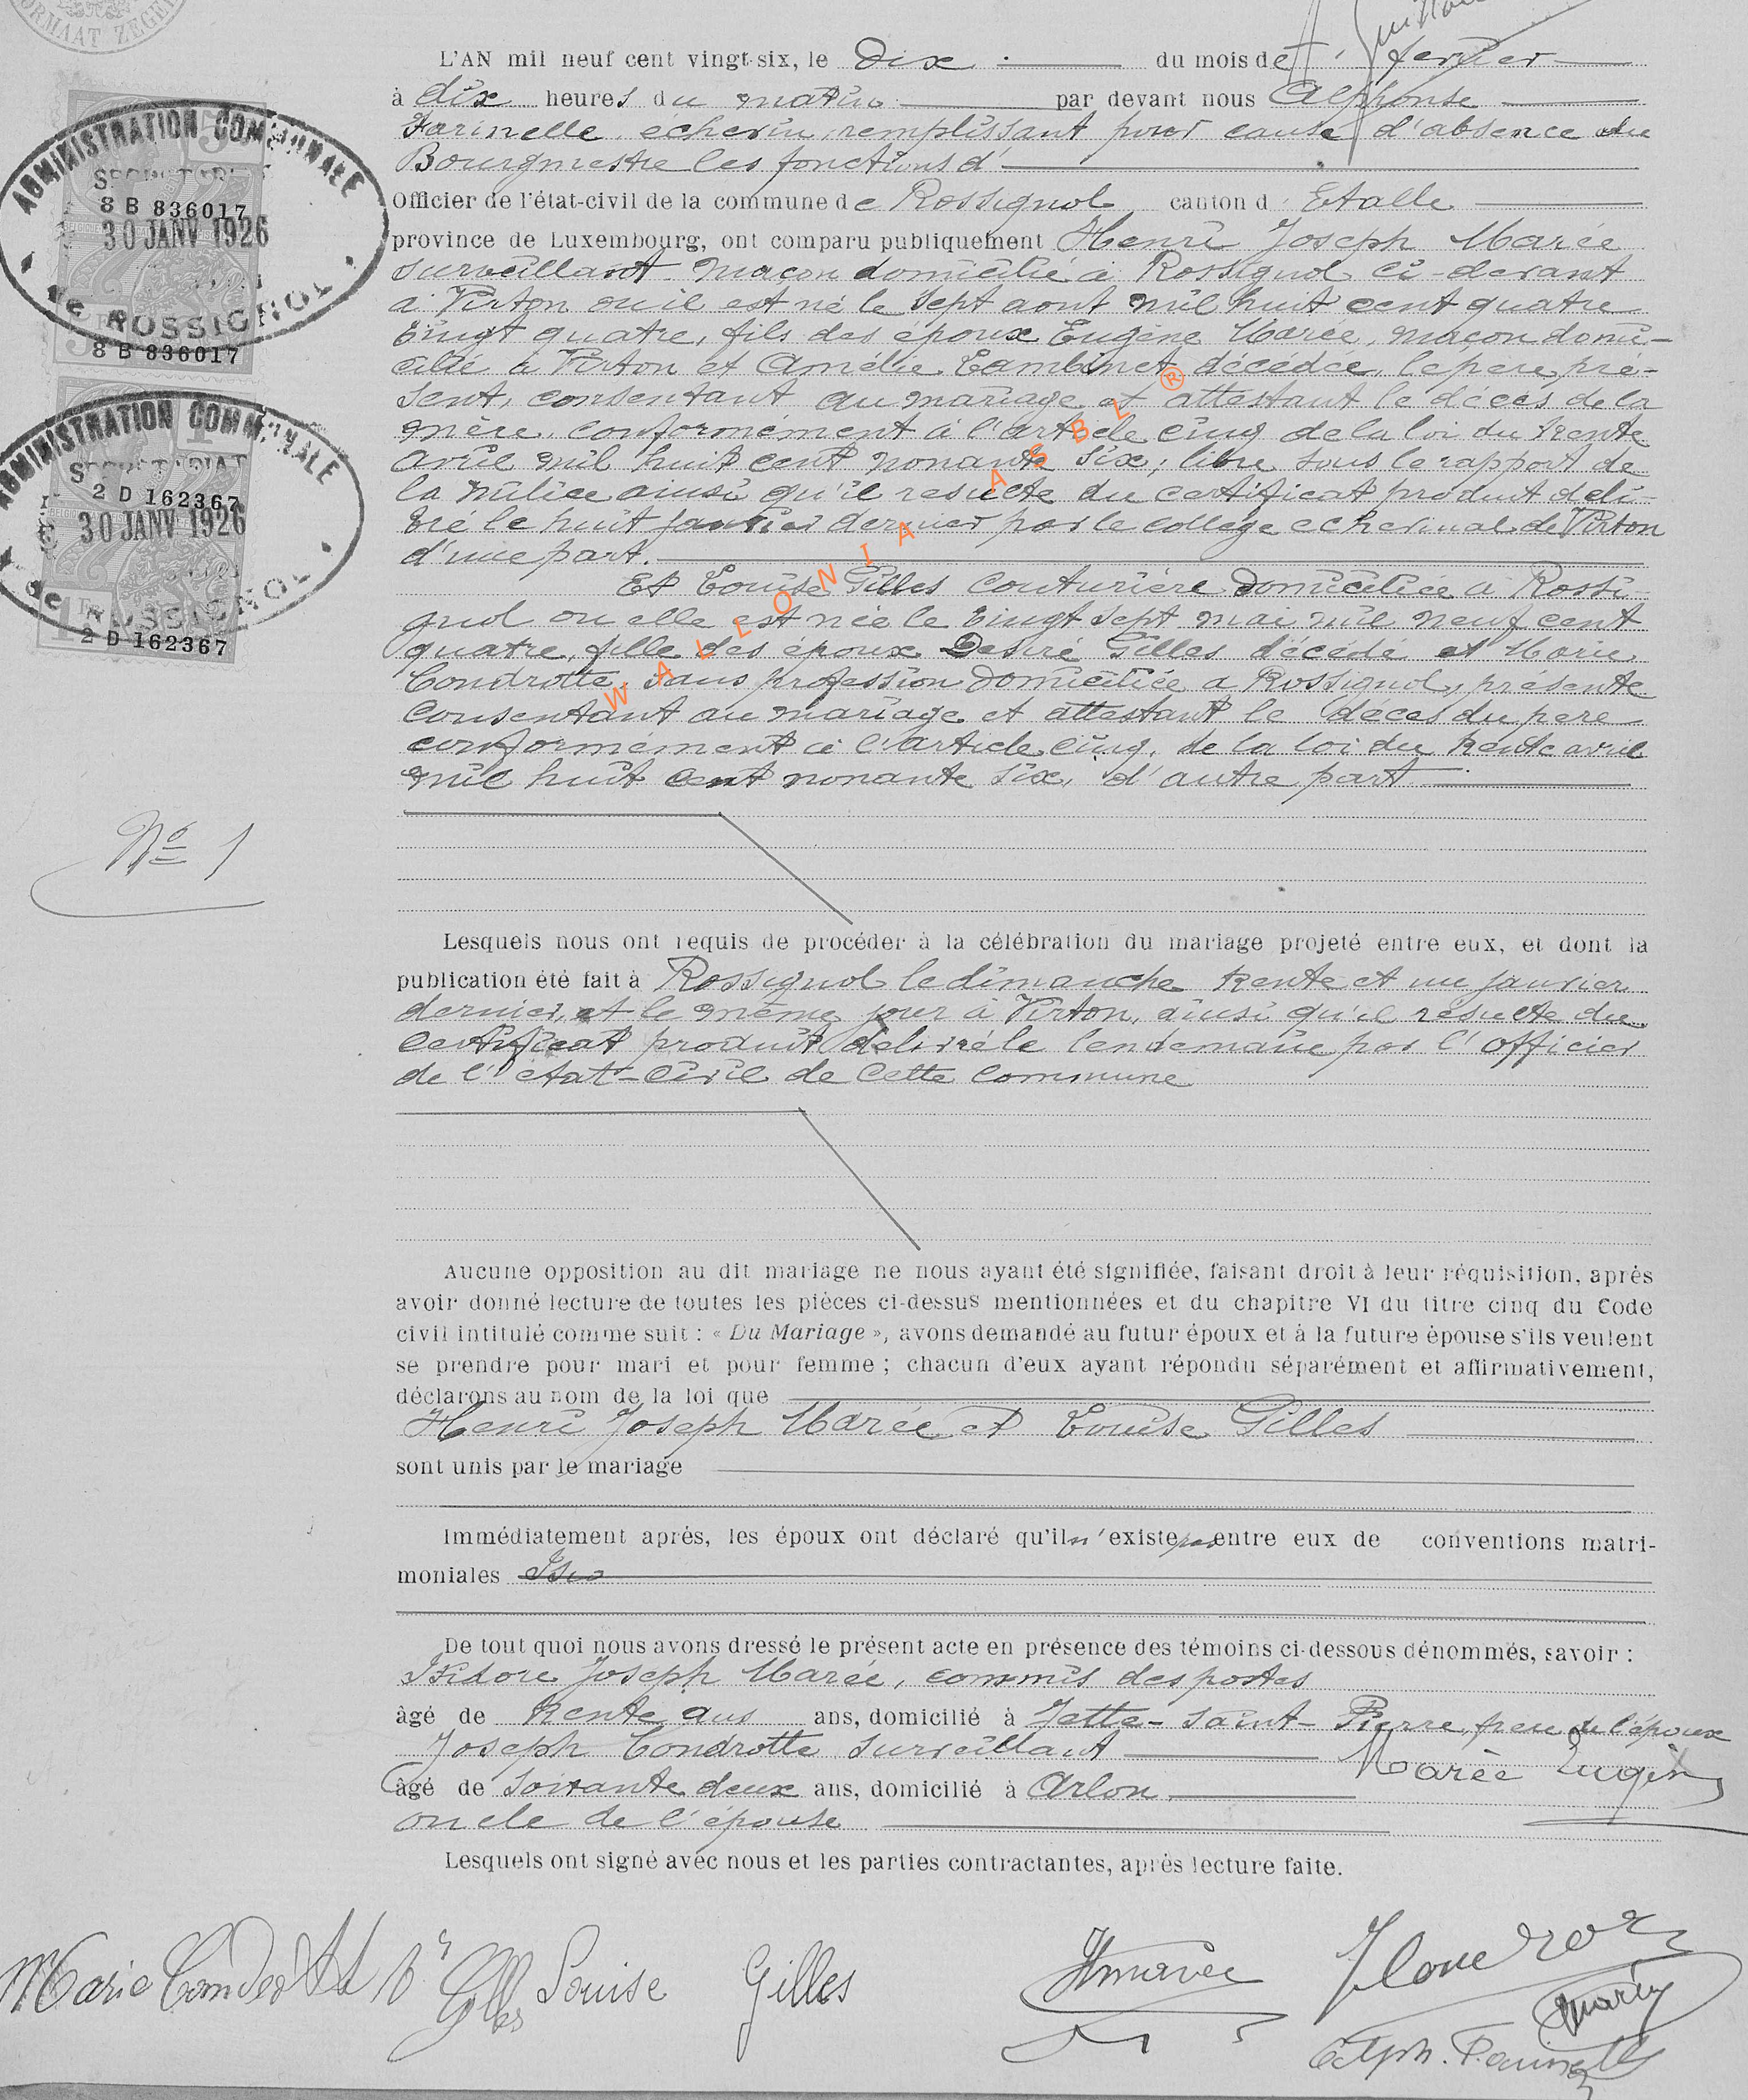 L'AN mil neuf cent vingt-six, le dix du mois de fevrier
à dix heures du matin par devant nous Alphonse
Farinelle, échevin, remplissant pour cause d'absence du
Bourgmestre les fonctions d'
Officier de l'état-civil de la commune de Rossignol canton d' Etalle
province de Luxembourg, ont comparu publiquement Henri Joseph Marée
surveillant maçon domicilié à Rossignol ci-devant
à Virton ou il est né le sept aout mil huit cent quatre
vingt quatre, fils des époux Eugène Marée, maçon domi-
cilié à Virton et Amélie Lambinet décédée, le père pré-
sent, consentant au mariage et attestant le décès de la
mère, conformément à l'article cinq de la loi du trente
avril mil huit cent nonante six, libre sous le rapport de
la milice ainsi qu'il resulte du certificat produit deli-
vré le huit janvier dernier par le collège echevinal de Virton
d'une part.
Et Louise Gilles couturière domiciliée a Rossi-
gnol ou elle est née le vingt sept mai mil neuf cent
quatre, fille des époux Desiré Gilles décédé et Marie
Condrotte, sans profession domiciliée a Rossignol, présente
consentant au mariage et attestant le décès du père
conformément à l'article cinq, de la loi du trente avril
mil huit cent nonante six, d'autre part
WALLONIA ASBL ®
ADMINISTRATION COMMUNALE
SECRETARIAT
8 B 836017
30 JANV 1926
de ROSSIGNOL
8 B 836017
ADMINISTRATION COMMUNALE
SECRETARIAT
2 D 162367
30 JANV 1926
de ROSSIGNOL
2 D 162367
No 1
Lesquels nous ont requis de procéder à la célébration du mariage projeté entre eux, et dont la
publication été fait à Rossignol le dimanche trente et un janvier
dernier, et le même jour à Virton, ainsi qu'il résulte du
certificat produit delivré le lendemain par l'officier
de l'etat-civil de cette commune
Aucune opposition au dit mariage ne nous ayant été signifiée, faisant droit à leur réquisition, après
avoir donné lecture de toutes les pièces ci-dessus mentionnées et du chapitre VI du titre cinq du Code
civil intitulé comme suit : « Du Mariage », avons demandé au futur époux et à la future épouse s'ils veulent
se prendre pour mari et pour femme ; chacun d'eux ayant répondu séparément et affirmativement,
déclarons au nom de la loi que
Henri Joseph Marée et Louise Gilles
sont unis par le mariage
Immédiatement après, les époux ont déclaré qu'il n'existe pas entre eux de conventions matri-
moniales
De tout quoi nous avons dressé le présent acte en présence des témoins ci-dessous dénommés, savoir :
Isidore Joseph Marée, commis des postes
âgé de trente ans ans, domicilié à Jette-Saint-Pierre, frère de l'époux
Joseph Condrotte surveillant
Marée Eugène
âgé de soixante deux ans, domicilié à Arlon
oncle de l'épouse
Lesquels ont signé avec nous et les parties contractantes, après lecture faite.
Marie Condrotte Ve Gilles Louise Gilles HMarée JCondrotte
Marée
Alph. Farinelle